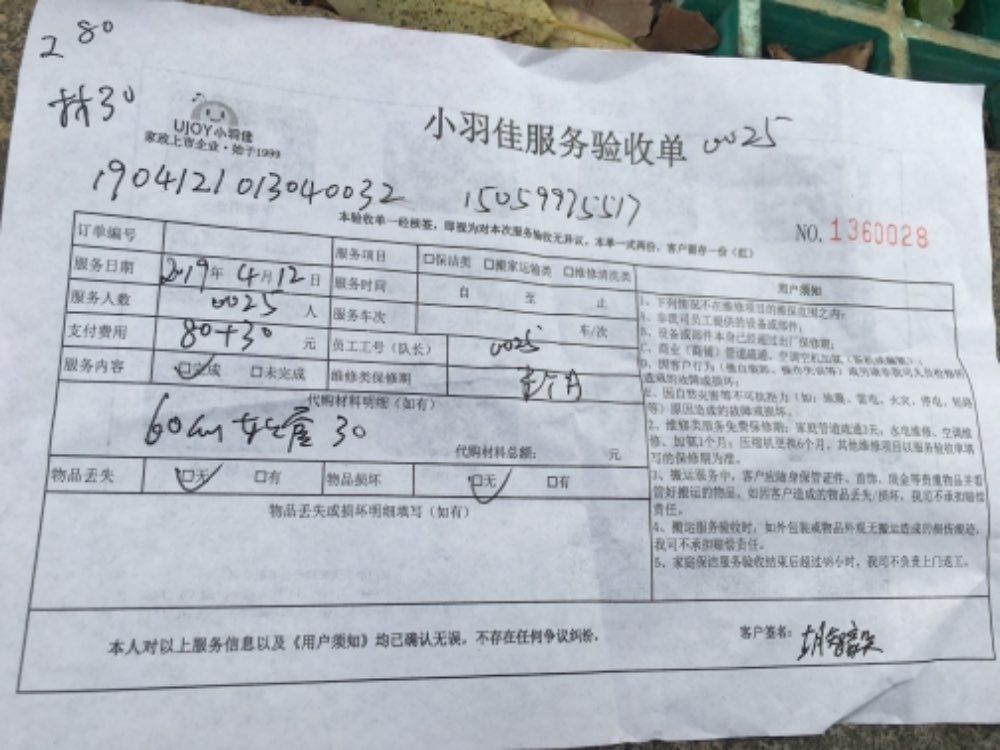 2 80
材30
UJOY小羽佳
家政上市企业·始于1999
小羽佳服务验收单 0025
1904121013040032 15059975517
本验收单一经核签，即视为对本次服务验收无异议，本单一式两份，客户留存一份（红）
NO. 1360028
订单编号 服务项目 □保洁类 □搬家运输类 □维修清洗类
服务日期 2019年4月12日 服务时间 自 至 止
服务人数 0025 人 服务车次 车/次
支付费用 80+30 元 员工工号（队长） 0025
服务内容 □完成 □未完成 维修类保修期 个月
代购材料明细（如有）
60cm 管 30
代购材料总额： 元
物品丢失 □无 □有 物品损坏 □无 □有
物品丢失或损坏明细填写（如有）
用户须知
1、下列情况不在维修项目的维保范围之内：
A、非我司员工提供的设备或部件；
B、设备或部件本身已经超过出厂保修期；
C、商业（商铺）管道疏通、空调空机加氨
D、因客户行为
造成的故障或损坏；
E、因自然灾害等不可抗拒力（如：地震、雷电、火灾、停电、短路
等）原因造成的故障或损坏。
2、维修类服务免费保修期：家庭管道疏通3天；水电维修、空调维
修、加氨1个月；压缩机更换6个月，其他维修项目以服务验收单填
写的保修期为准。
3、搬运服务中，客户应随身保管证件、首饰、现金等贵重物品并看
管好搬运的物品，如因客户造成的物品丢失/损坏，我司不承担赔偿
责任。
4、搬运服务验收时，如外包装或物品外观无搬运造成的损伤痕迹，
我司不承担赔偿责任。
5、家庭保洁服务验收结束后超过48小时，我司不负责上门返工。
本人对以上服务信息以及《用户须知》均已确认无误，不存在任何争议纠纷。
客户签名：胡智